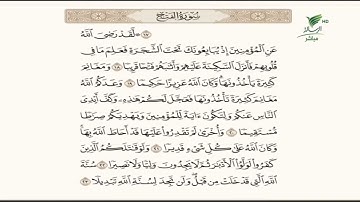 سُورَةُ الفَتْحِ
HD
مباشر
۞ لَّقَدْ رَضِيَ ٱللَّهُ
عَنِ ٱلْمُؤْمِنِينَ إِذْ يُبَايِعُونَكَ تَحْتَ ٱلشَّجَرَةِ فَعَلِمَ مَا فِي
قُلُوبِهِمْ فَأَنزَلَ ٱلسَّكِينَةَ عَلَيْهِمْ وَأَثَٰبَهُمْ فَتْحًا قَرِيبًا ١٨ وَمَغَانِمَ
كَثِيرَةً يَأْخُذُونَهَا وَكَانَ ٱللَّهُ عَزِيزًا حَكِيمًا ١٩ وَعَدَكُمُ ٱللَّهُ
مَغَانِمَ كَثِيرَةً تَأْخُذُونَهَا فَعَجَّلَ لَكُمْ هَٰذِهِۦ وَكَفَّ أَيْدِيَ
ٱلنَّاسِ عَنكُمْ وَلِتَكُونَ ءَايَةً لِّلْمُؤْمِنِينَ وَيَهْدِيَكُمْ صِرَٰطًا
مُّسْتَقِيمًا ٢٠ وَأُخْرَىٰ لَمْ تَقْدِرُوا۟ عَلَيْهَا قَدْ أَحَاطَ ٱللَّهُ بِهَا
وَكَانَ ٱللَّهُ عَلَىٰ كُلِّ شَيْءٍ قَدِيرًا ٢١ وَلَوْ قَٰتَلَكُمُ ٱلَّذِينَ
كَفَرُوا۟ لَوَلَّوُا۟ ٱلْأَدْبَٰرَ ثُمَّ لَا يَجِدُونَ وَلِيًّا وَلَا نَصِيرًا ٢٢ سُنَّةَ
ٱللَّهِ ٱلَّتِي قَدْ خَلَتْ مِن قَبْلُ وَلَن تَجِدَ لِسُنَّةِ ٱللَّهِ تَبْدِيلًا ٢٣